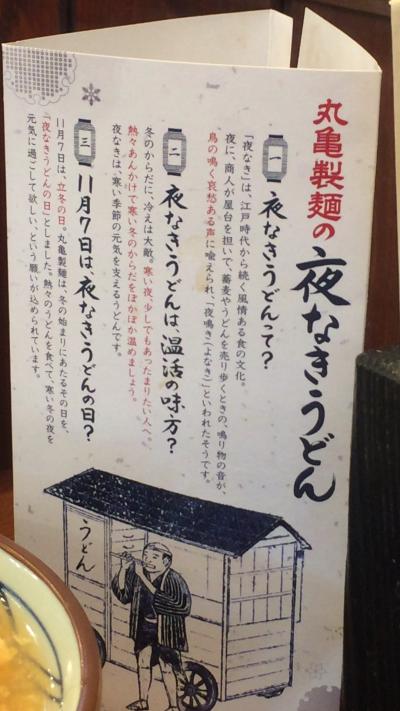 丸亀製麺の夜なきうどん
一 夜なきうどんって?
「夜なき」は、江戸時代から続く風情ある食の文化。
夜に、商人が屋台を担いで、蕎麦やうどんを売り歩くときの、鳴り物の音が、
鳥の鳴く哀愁ある声に喩えられ、「夜鳴き(よなき)」といわれたそうです。
二 夜なきうどんは、温活の味方?
冬のからだに、冷えは大敵。寒い夜、少しでもあったまりたい人へ。
熱々あんかけで寒い冬のからだをぽかぽか温めましょう。
夜なきは、寒い季節の元気を支えるうどんです。
三 11月7日は夜なきうどんの日?
11月7日は、立冬の日。丸亀製麺は、冬の始まりにあたるその日を、
「夜なきうどんの日」としました。熱々のうどんを食べて、寒い冬の夜を
元気に過ごして欲しい、という願いが込められています。
うどん